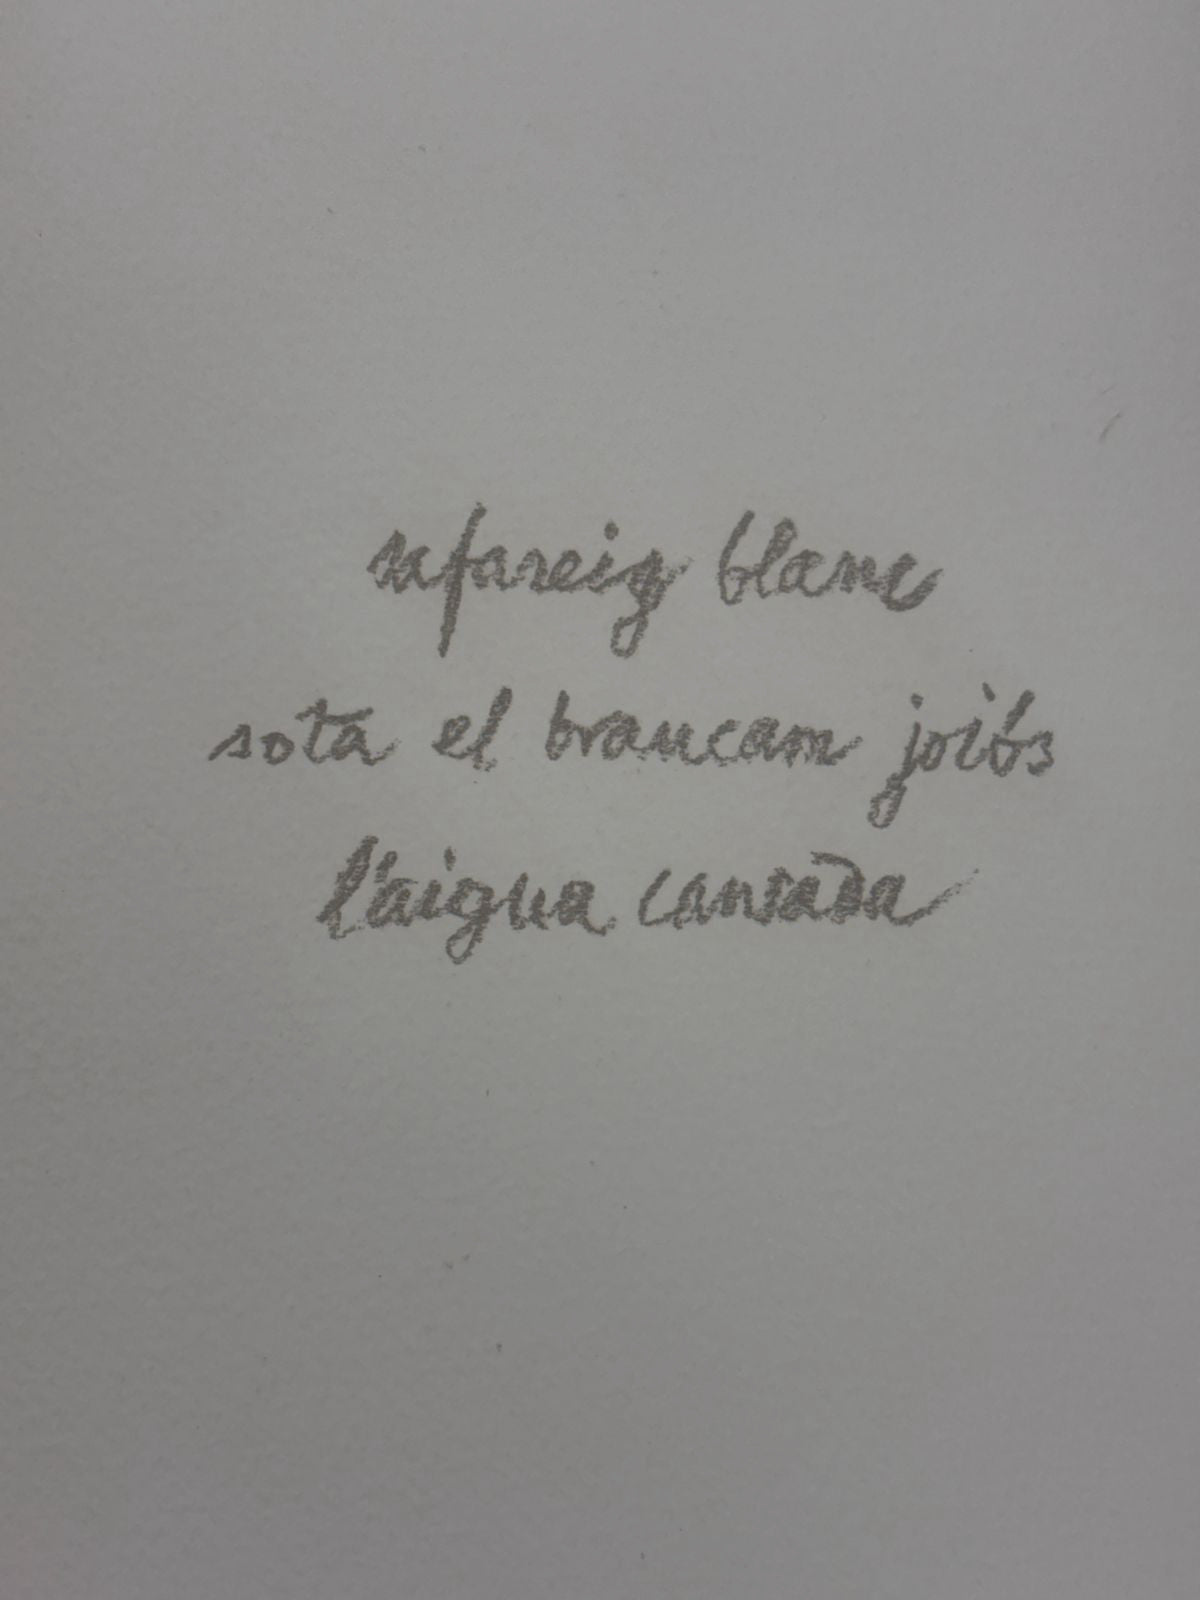 safareig blanc
sota el brancam joiós
l'aigua cansada